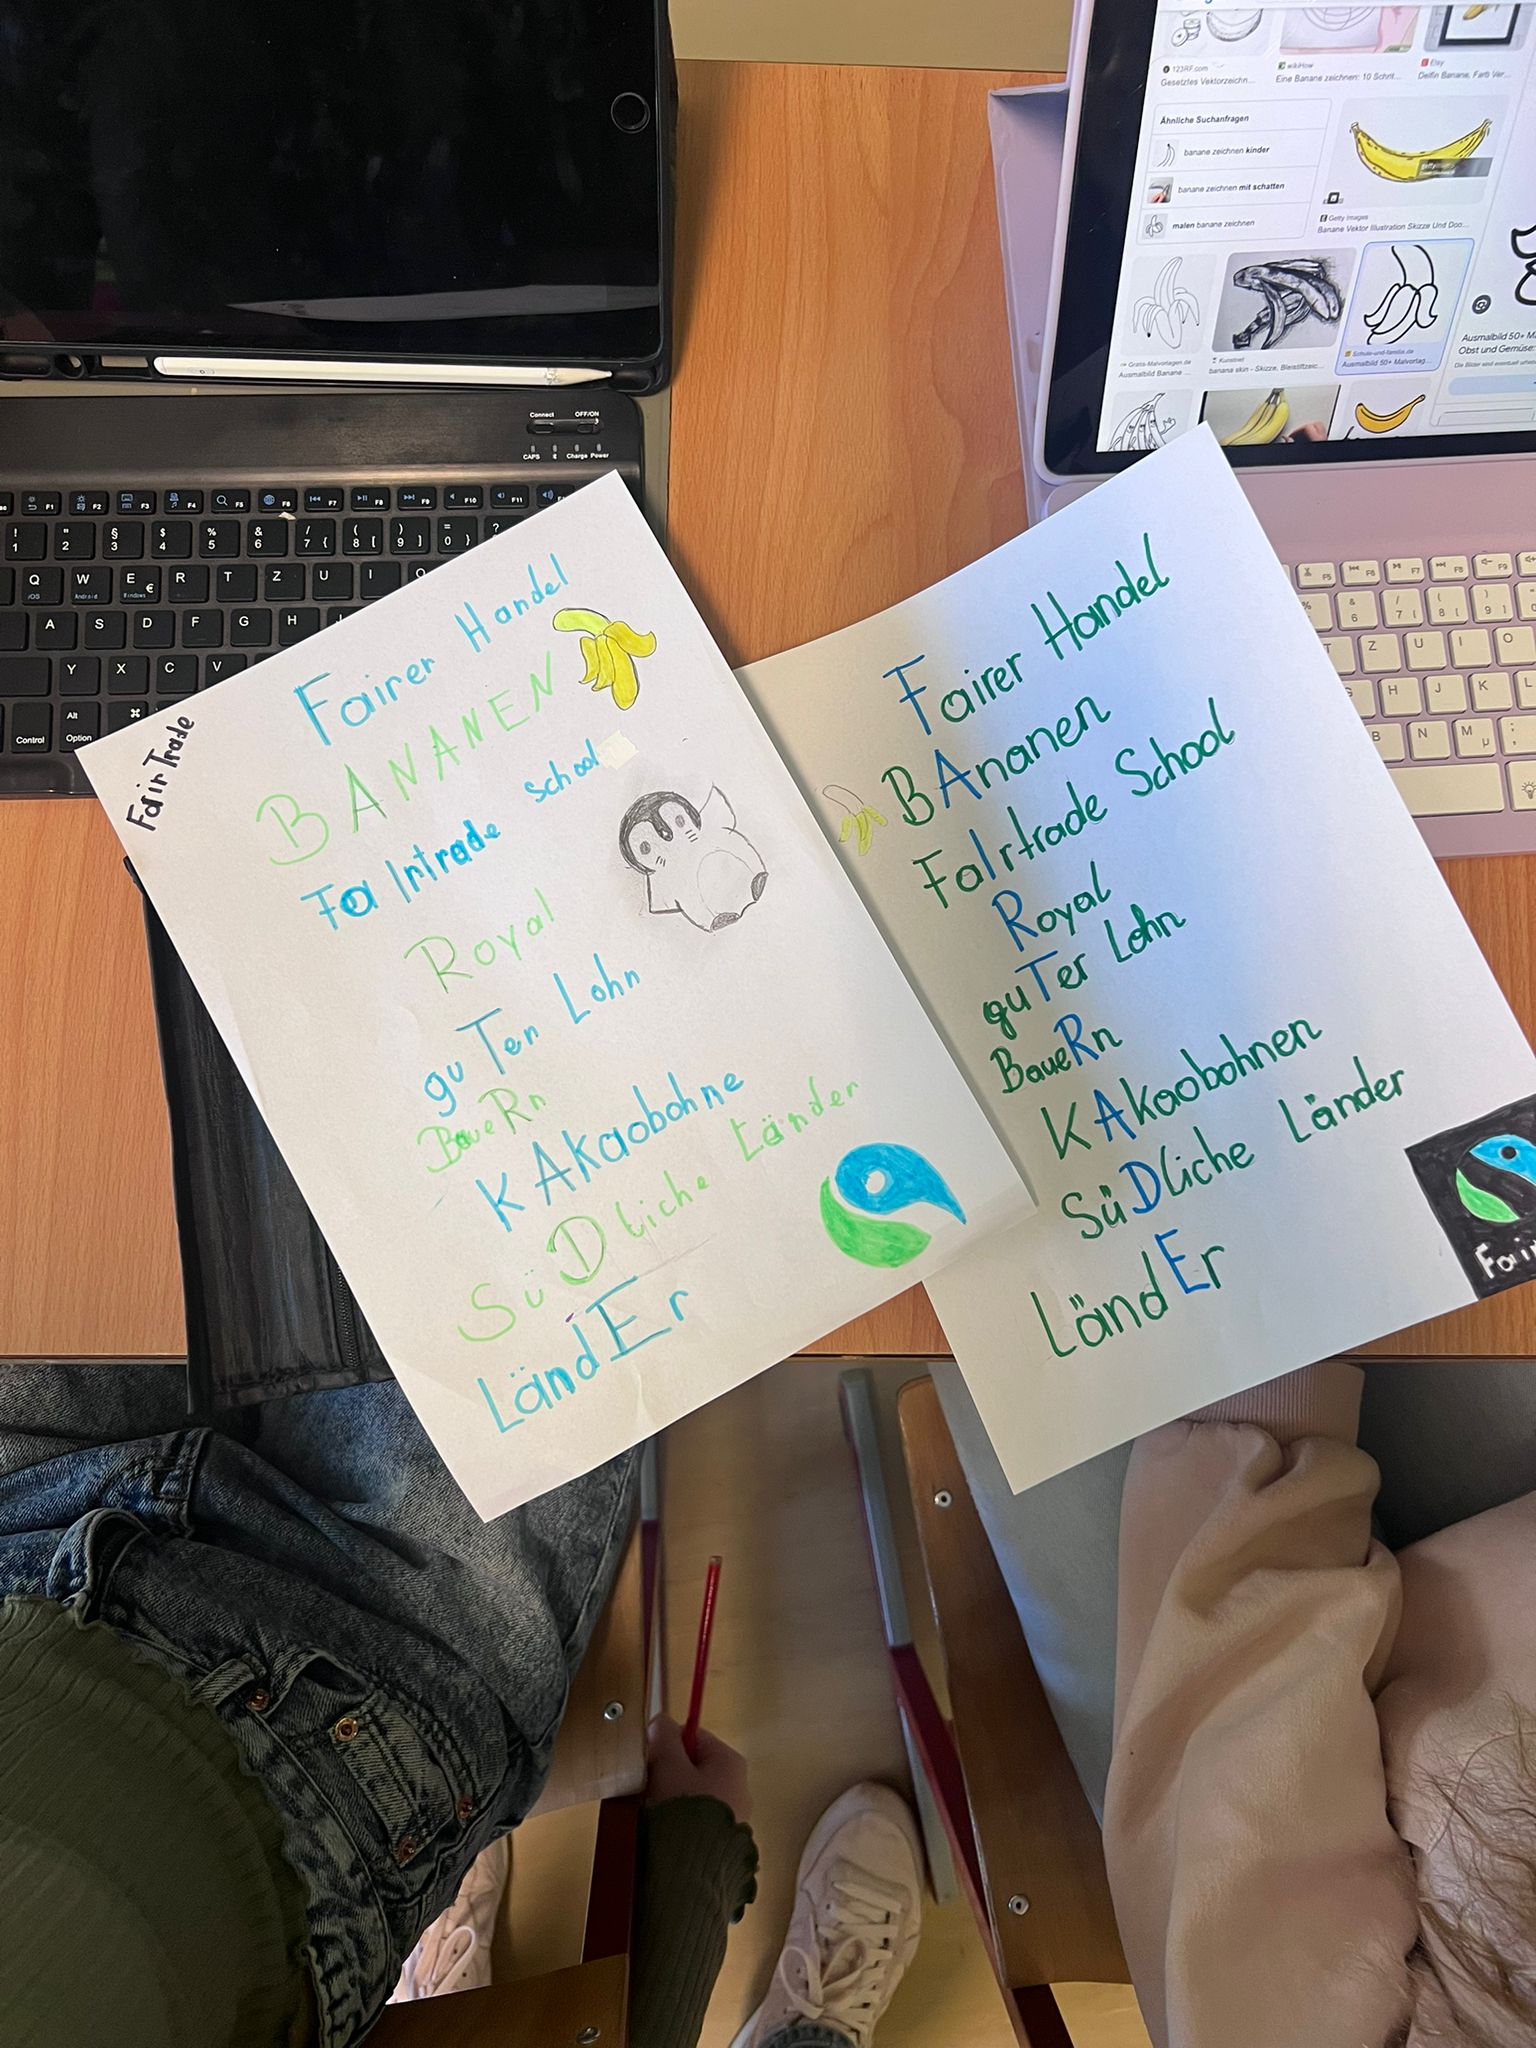 123RF.com
Gesetzles Vektorzeichn...
wikiHow
Eine Banane zeichnen: 10 Schrit...
Etsy
Delfin Banane, Farb Ver...
Ähnliche Suchanfragen
banane zeichnen kinder
banane zeichnen mit schatten
malen banane zeichnen
Getty Images
Banane Vektor Illustration Skizze Und Doo...
Gratis-Malvorlagen.de
Ausmalbild Banane ...
Kunstnet
banana skin - Skizze, Bleistiftzeic...
Schule-und-familie.de
Ausmalbild 50+ Malvorlag...
Ausmalbild 50+ M
Obst und Gemüse:
Connect OFF/ON
CAPS Charge Power
F1 F2 F3 F4 F5 F6 F7 F8 F9 F10 F11
! " § $ % & / ( ) = ?
1 2 3 4 5 6 7 { 8 [ 9 ] 0 }
Q W E € R T Z U I
A S D F G H
Y X C V
Control Alt Option ⌘
F5 F6 F7 F8 F9
% & / ( )
6 7 { 8 [ 9 ]
T Z U I O
G H J K L
B N M µ ;
FairTrade
Fairer Handel
BANANEN
FaIrtrade school
Royal
guTer Lohn
BaueRn
KAkaobohne
SüDliche Länder
LändEr
Fairer Handel
BAnanen
FaIrtrade School
Royal
guTer Lohn
BaueRn
KAkaobohnen
SüDliche Länder
LändEr
Fair